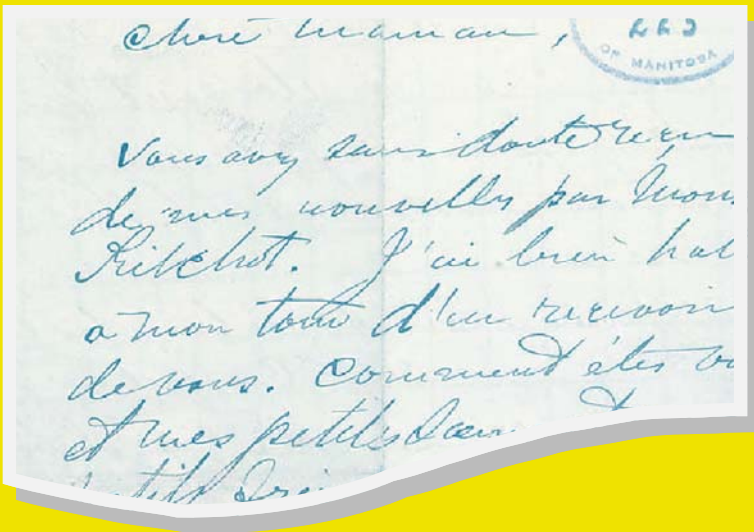 Chère maman,
223
OF MANITOBA
Vous avez sans doute reçu
de mes nouvelles par Mons
Ritchot. J'ai bien hat
à mon tour d'en recevoir
de vous. Comment êtes vo
et mes petites Sœurs et
petits frè